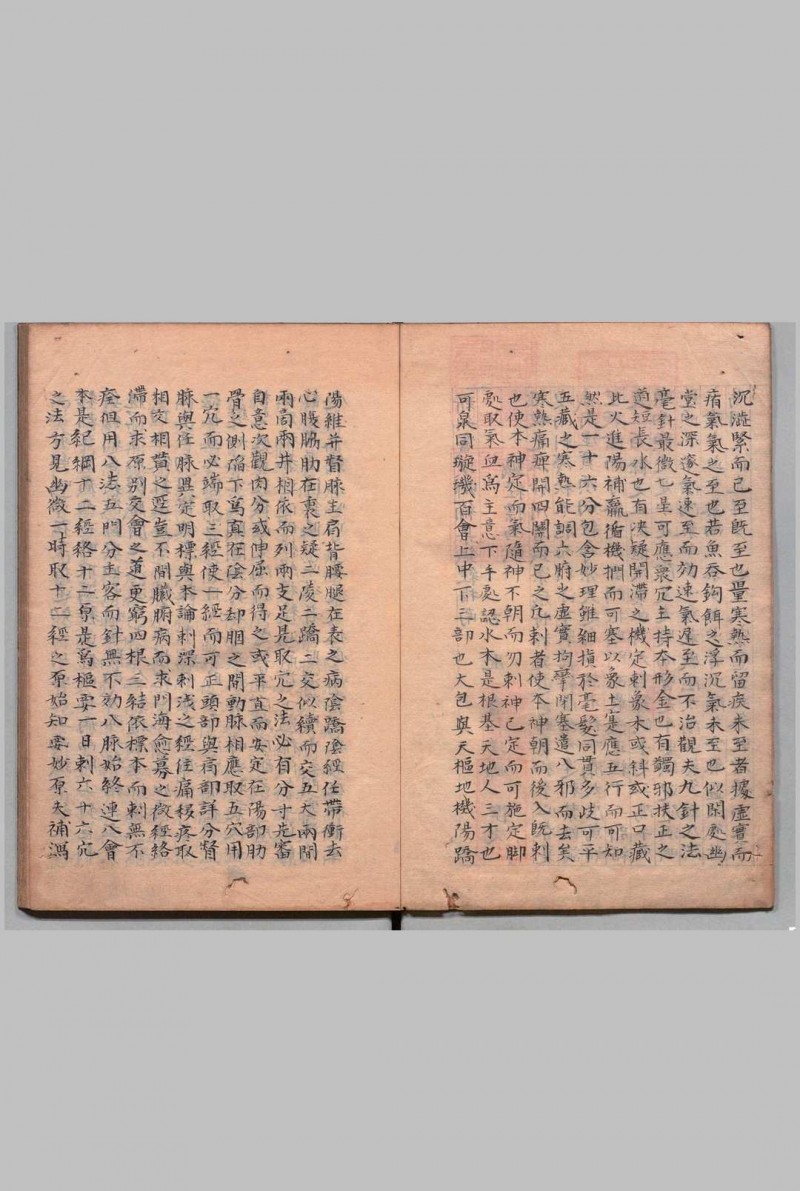 沉澁緊而已至旣至也量寒熱而留疾未至者據虛實而
痏氣氣之至也若魚吞鈎餌之浮沉氣未至也似閑處幽
堂之深邃氣速至而効速氣遲至而不治觀夫九針之法
毫針最微七星可應衆穴主持本形金也有蠲邪扶正之
道短長水也有决疑開滯之機定刺象木或斜或正口藏
比火進陽補羸循機捫而可塞以象土寔應五行而可知
然是一寸六分包含妙理雖細擬於毫髮同貫多歧可平
五藏之寒熱能調六腑之虛實拘攣閉塞遣八邪而去矣
寒熱痛痺開四關而已之凡刺者使本神朝而後入旣刺
也使本神定而氣隨神不朝而勿刺神已定而可施定脚
處取氣血爲主意下手處認水木是根基天地人三才也
可泉同璇機百會上中下三部也大包與天樞地機陽蹻
陽維并督脉主肩背腰腿在表之病陰蹻陰経任帶衝去
心腹脇肋在裏之疑二陵二蹻二交似續而交五大兩間
兩商兩井相依而列兩支足見取穴之法必有分寸先審
自意次觀肉分或伸屈而得之或平直而安定在陽部肋
骨之側陷下爲真在陰分却膕之間動脉相應取五穴用
一穴而必端取三經使一經而可正頭部與肩部詳分督
脉與任脉異定明標與本論刺深刺淺之經住痛移疼取
相交相貫之逕豈不聞臟腑病而求門海俞募之微經絡
滯而求原別交會之道更窮四根三結依標本而刺無不
痊但用八法五門分主客而針無不効八脉始終連八會
本是紀綱十二經絡十二原是爲樞要一日刺六十六穴
之法方見幽微一時取十二經之原始知要妙原夫補瀉